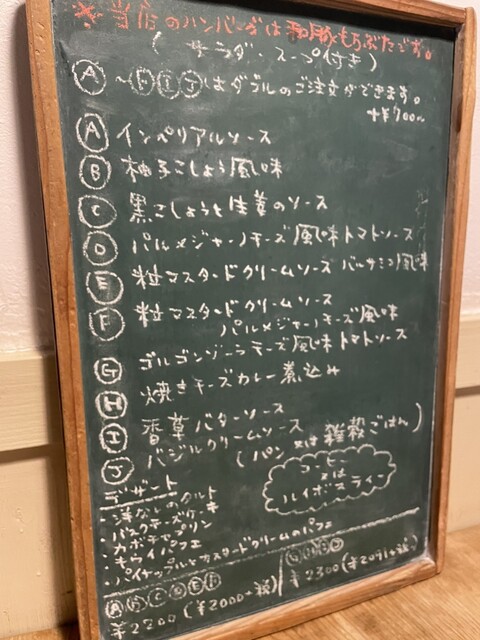 ※当店のハンバーグは和豚もちぶたです。
(サラダ・スープ付き)
Ⓐ〜ⒽⒾⒿはダブルのご注文ができます。
+¥700〜
Ⓐ インペリアルソース
Ⓑ 柚子こしょう風味
Ⓒ 黒こしょうと生姜のソース
Ⓓ パルメジャーノチーズ風味トマトソース
Ⓔ 粒マスタードクリームソース バルサミコ風味
Ⓕ 粒マスタードクリームソース
パルメジャーノチーズ風味
Ⓖ ゴルゴンゾーラチーズ風味トマトソース
Ⓗ 焼きチーズカレー煮込み
Ⓘ 香草バターソース
Ⓙ バジルクリームソース
(パン 又は 雑穀ごはん)
デザート
・洋なしのタルト
・バスクチーズケーキ
・カボチャプリン
・もらイパフェ
・パイナップルとカスタードクリームのパフェ
コーヒー
又は
ルイボスティー
ⒶⒷⒸⒹⒺⒻ
¥2200(¥2000+税)
ⒼⒽⒾⒿ
¥2300(¥2091+税)